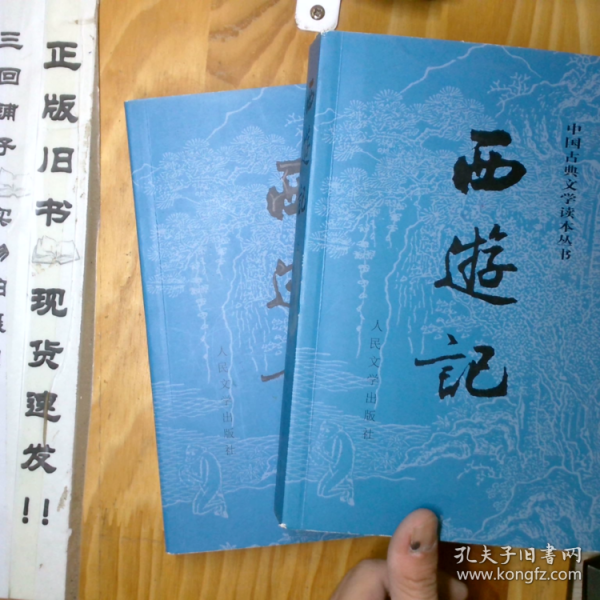 三回铺子
实物拍摄
正版旧书
现货速发!!
中国古典文学读本丛书
西遊記
人民文学出版社
西遊
人民文学出版社
孔夫子旧书网
www.kongfz.com